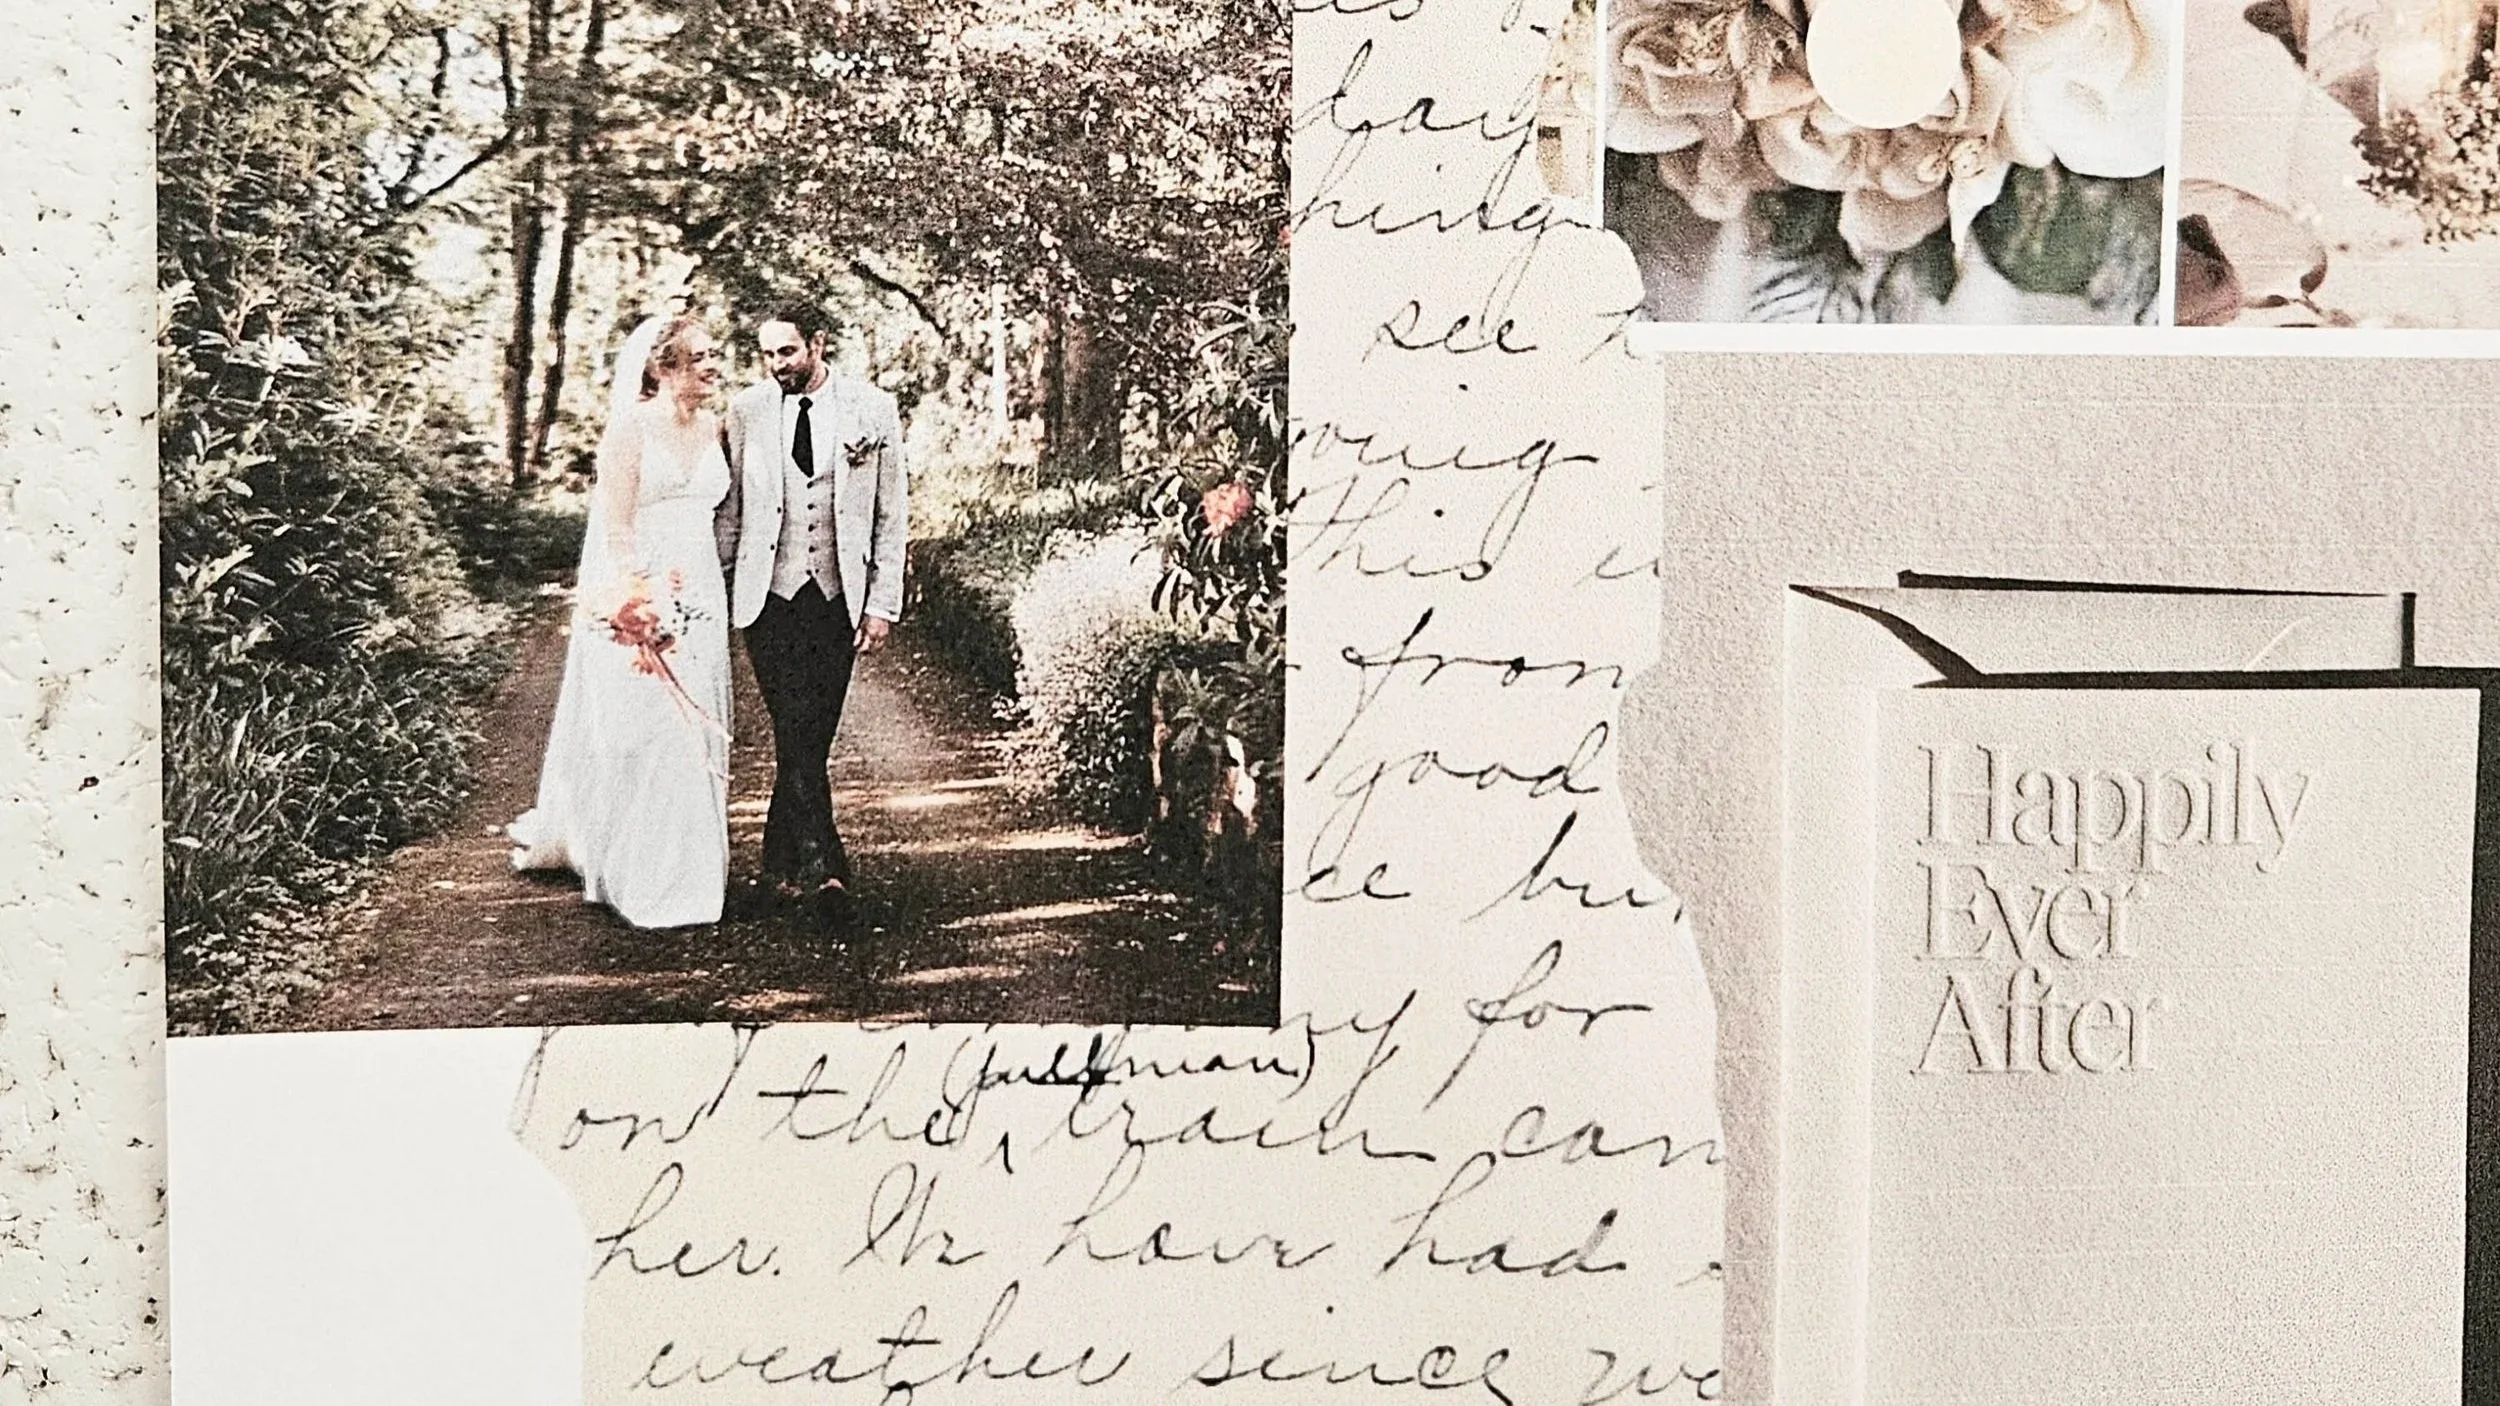 day
hing
see
this
from
good
ce bu
for
(pullman)
on the train
her. We have had
weather since we
Happily
Ever
After